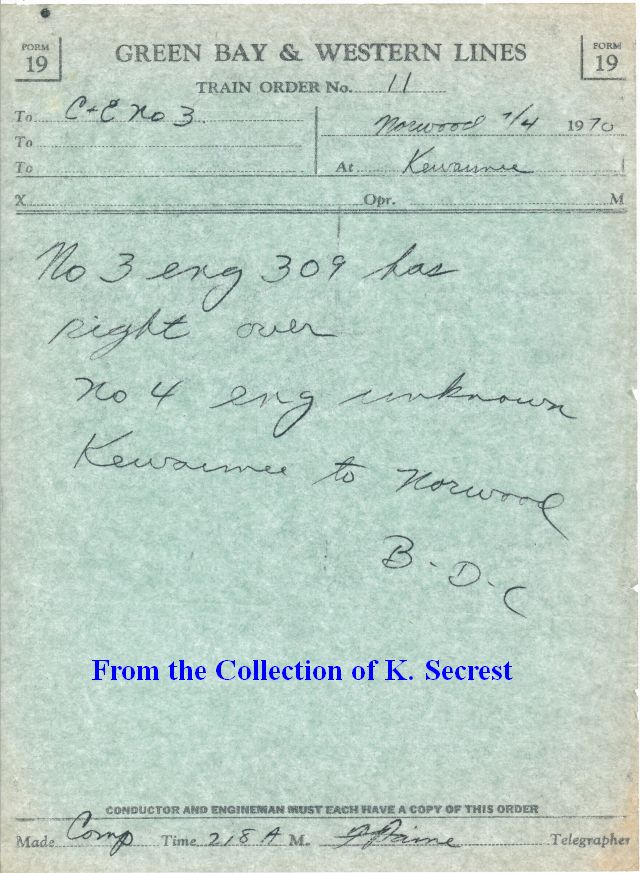 FORM
19
GREEN BAY & WESTERN LINES
FORM
19
TRAIN ORDER No. 11
To C+E No 3
Norwood 7/4 1970
To
To
At Kewaunee
X
Opr.
M
No 3 eng 309 has
right over
No 4 eng unknown
Kewaunee to Norwood
B-D-C
From the Collection of K. Secrest
CONDUCTOR AND ENGINEMAN MUST EACH HAVE A COPY OF THIS ORDER
Made Comp Time 218 A M. Telegrapher